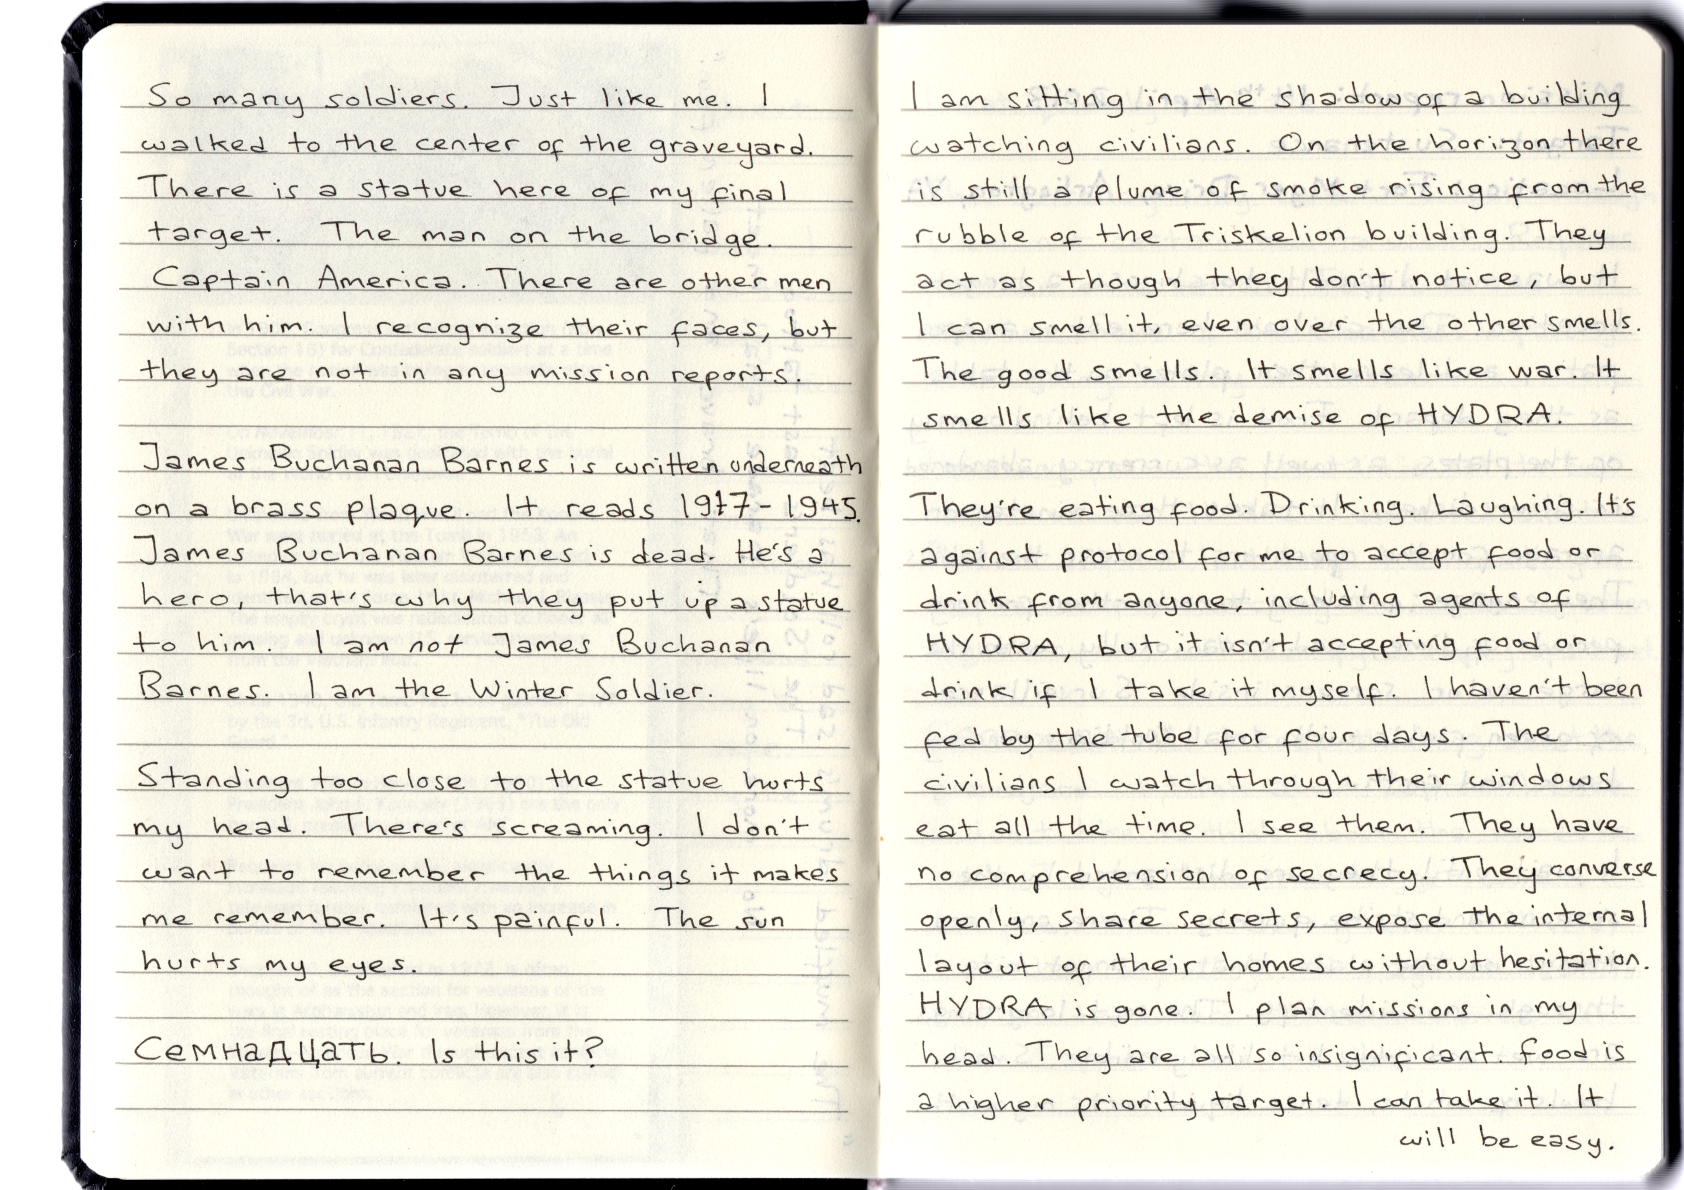 So many soldiers. Just like me. I
walked to the center of the graveyard.
There is a statue here of my final
target. The man on the bridge.
Captain America. There are other men
with him. I recognize their faces, but
they are not in any mission reports.
James Buchanan Barnes is written underneath
on a brass plaque. It reads 1917-1945.
James Buchanan Barnes is dead. He's a
hero, that's why they put up a statue
to him. I am not James Buchanan
Barnes. I am the Winter Soldier.
Standing too close to the statue hurts
my head. There's screaming. I don't
want to remember the things it makes
me remember. It's painful. The sun
hurts my eyes.
Семнадцать. Is this it?
I am sitting in the shadow of a building
watching civilians. On the horizon there
is still a plume of smoke rising from the
rubble of the Triskelion building. They
act as though they don't notice, but
I can smell it, even over the other smells.
The good smells. It smells like war. It
smells like the demise of HYDRA.
They're eating food. Drinking. Laughing. It's
against protocol for me to accept food or
drink from anyone, including agents of
HYDRA, but it isn't accepting food or
drink if I take it myself. I haven't been
fed by the tube for four days. The
civilians I watch through their windows
eat all the time. I see them. They have
no comprehension of secrecy. They converse
openly, share secrets, expose the internal
layout of their homes without hesitation.
HYDRA is gone. I plan missions in my
head. They are all so insignificant. Food is
a higher priority target. I can take it. It
will be easy.